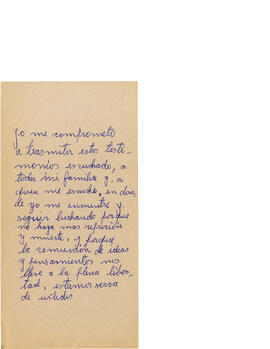 Yo me comprometo
a trasmitir estos testi-
monios escuchado, a
toda mi familia y a
quien me escuche, en don-
de yo me encuentre y
seguir luchando porque
no haya mas represión
y muerte, y porque
la comunión de ideas
y pensamientos nos
lleve a la plena liber-
tad, estamos serca
de ustedes